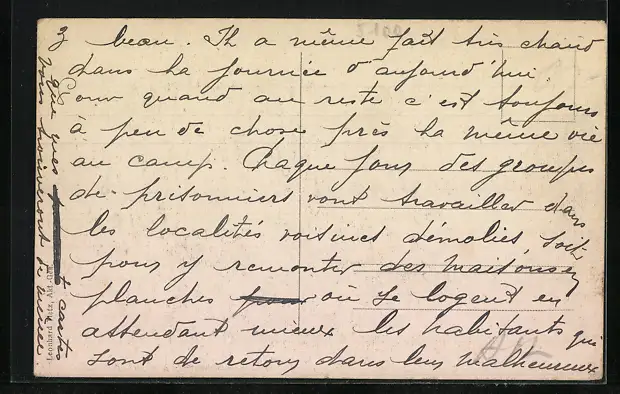 3 beau. Il a même fait très chaud
dans la journée d'aujourd'hui.
Pour quand au reste c'est toujours
à peu de chose près la même vie
au camp. Chaque jour des groupes
de prisonniers vont travailler dans
les localités voisines démolies, soit
pour y remonter des maisons en
planches où se logent en
attendant mieux les habitants qui
sont de retour dans leur malheureux
que ques cartes
vous trouveront de même
Leonhard Akt.-Ges.